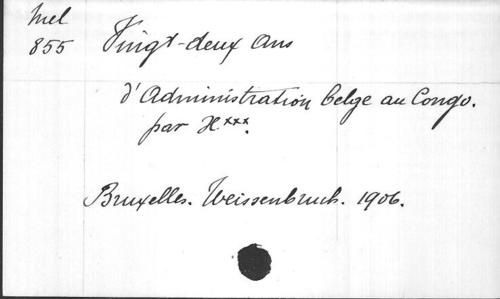 Mel
855
Vingt-deux Ans
d'Administration belge au Congo.
par H***.
Bruxelles. Weissenbruch. 1906.